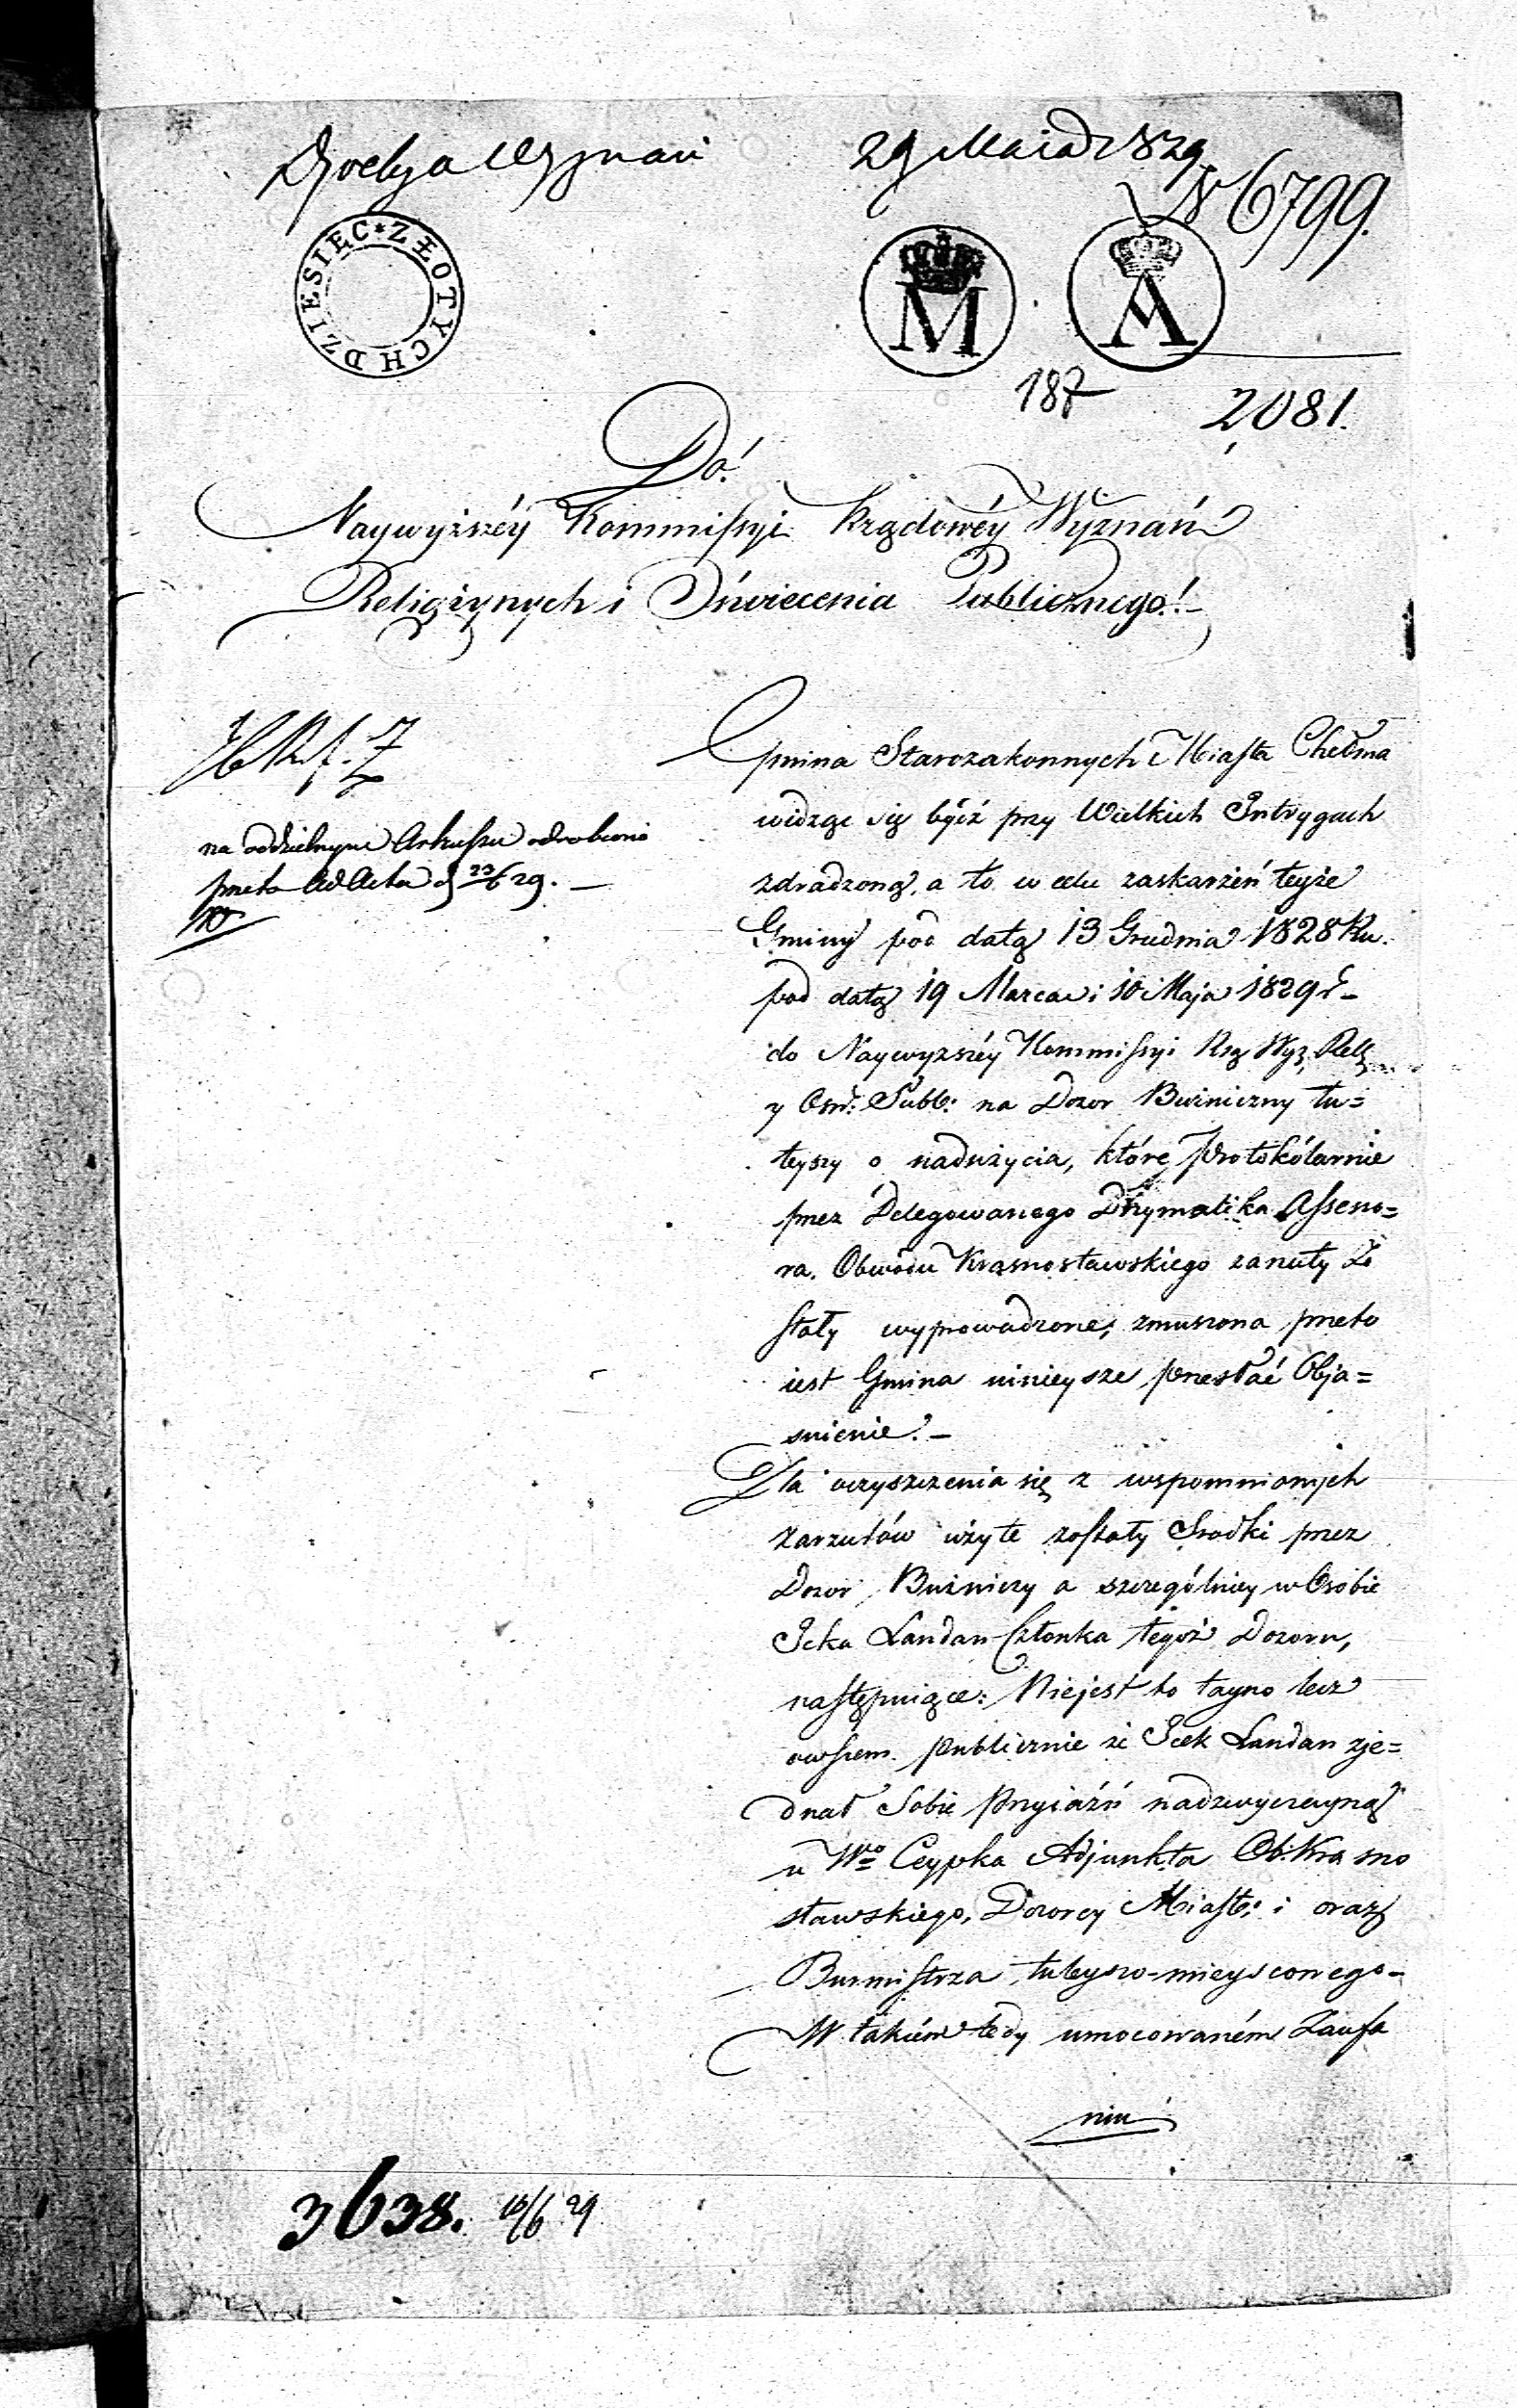 29 Maia 1829
N 6799.
DZIESIĘC * ZŁOTYCH
M
A
187
2081.
Do!
Naywyższéy Kommissyi Rządowéy Wyznań
Religiynych i Oświecenia Publicznego!
na oddzielnym Arkuszu odrobiono
przeto Ad Acta d 23/6 29.
Gmina Starozakonnych Miasta Chełma
widząc się być przy Wielkich Intrygach
zdradzoną, a to w celu zaskarżeń teyże
Gminy pod datą 13 Grudnia 1828 Ru.
pod datą 19 Marca i 10 Maja 1829 r
do Naywyzszéy Kommissyi Rzą Wyz. Relig
y Osw: Publ: na Dozor Bużniczny tu=
teyszy o nadużycia, które Protokólarnie
przez Delegowanego Drymalika Assesso=
ra. Obwodu Krasnostawskiego zarzuty Zo
stały wyprowadzone; zmuszona przeto
iest Gmina ninieysze przesłać Obja=
snienie.
Dla oczyszczenia się z wspomnionych
Zarzutów użyte zostały Srodki przez
Dozor Bużniczy a szczególniey w Osobie
Icka Landau Członka tegoż Dozoru,
następuiące: Niejest to tayno lecz
owszem publicznie że Icek Landau zje=
dnał Sobie Przyiaźń nadzwyczayną
u Wo Ceypka Adjunkta Ob: Krasno
stawskiego, Dozorcy Miast: i oraz
Burmistrza tuteyszo-mieyscowego
W takiém tedy umocowaném Zaufa
niu
3638. 10/6 29